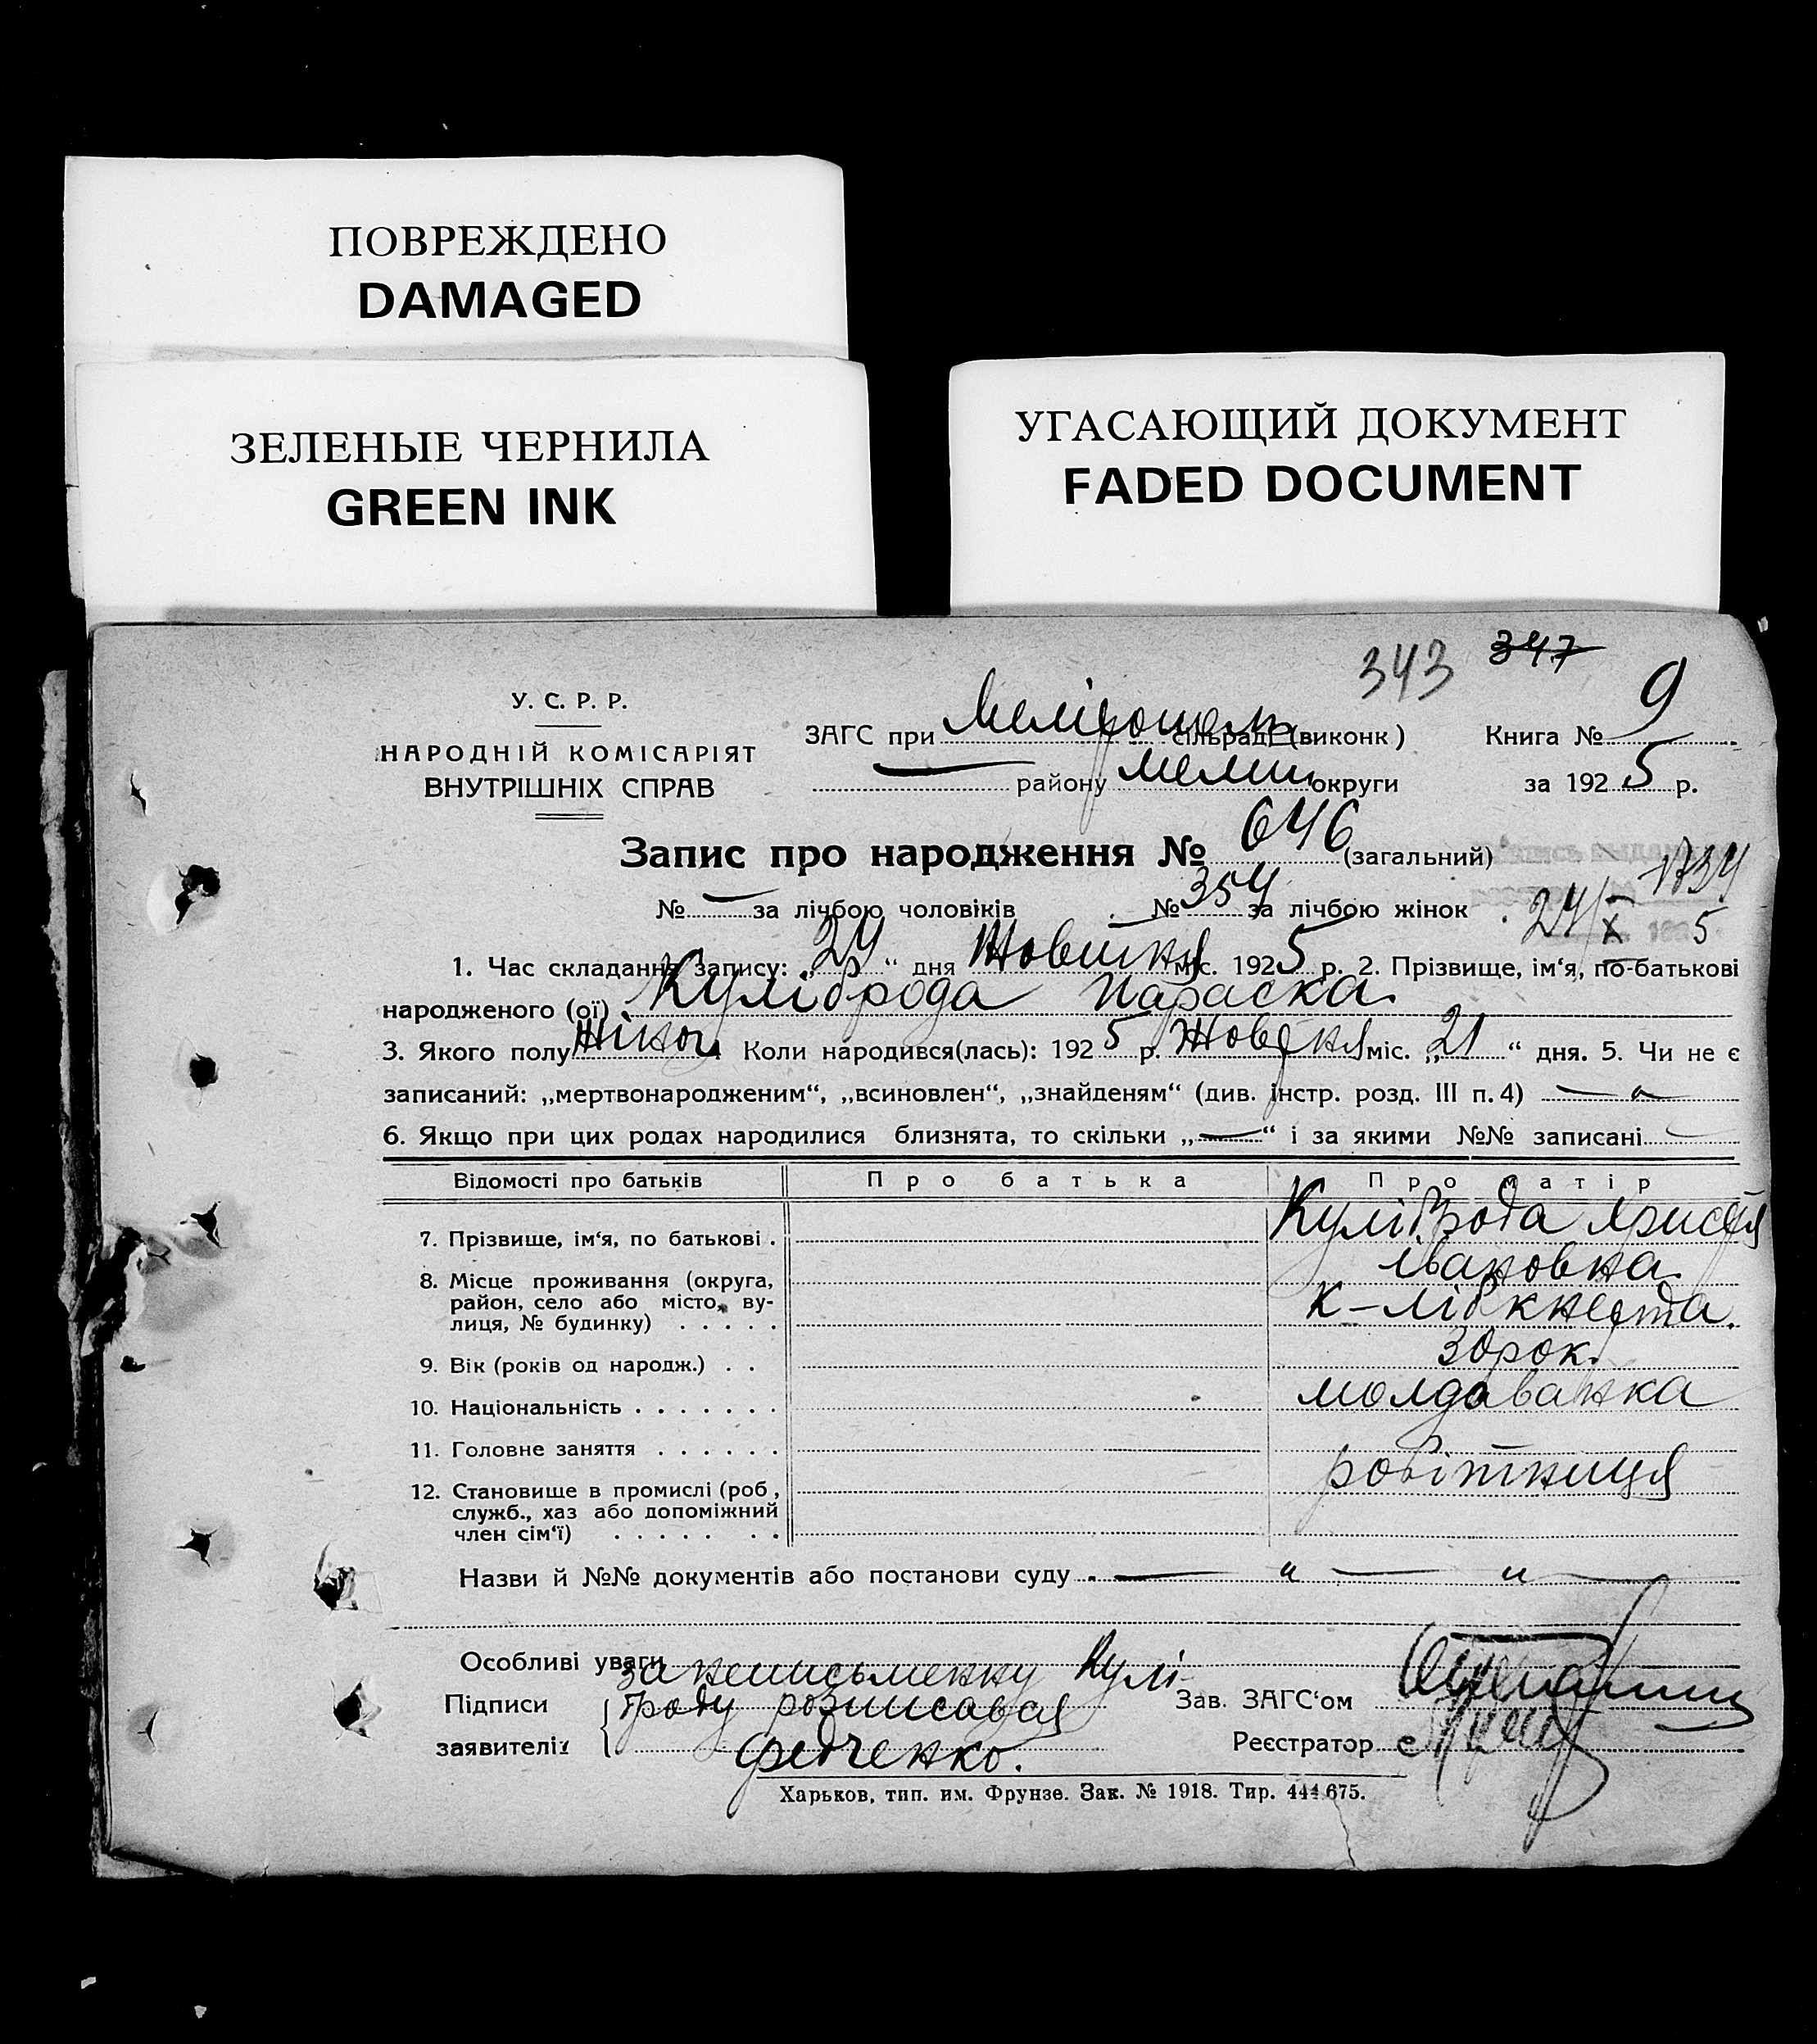 ПОВРЕЖДЕНО
DAMAGED
ЗЕЛЕНЫЕ ЧЕРНИЛА
GREEN INK
УГАСАЮЩИЙ ДОКУМЕНТ
FADED DOCUMENT
343 347
У. С. Р. Р.
НАРОДНІЙ КОМІСАРІЯТ
ВНУТРІШНІХ СПРАВ
ЗАГС при сільраді (виконк) Книга № 9
району мелит округи за 1925 р.
Запис про народження № 646 (загальний)
№ — за лічбою чоловіків № 354 за лічбою жінок
24/X 5
1. Час складання запису: „24“ дня Жовтня міс. 1925 р. 2. Прізвище, ім‘я, по-батькові
народженого (ої) Куліброда Параска.
3. Якого полу жіноч. Коли народився(лась): 1925 р. Жовтня міс. „21“ дня. 5. Чи не є
записаний: „мертвонародженим“, „всиновлен“, „знайденям“ (див. інстр. розд. III п. 4) — „ —
6. Якщо при цих родах народилися близнята, то скільки „—“ і за якими №№ записані —
Відомості про батьків Про батька Про матір
7. Прізвище, ім‘я, по батькові . Куліброда
Івановна
8. Місце проживання (округа,
район, село або місто, ву-
лиця, № будинку) . . . . .
9. Вік (років од народж.) . . 30 рок.
10. Національність . . . . . . . молдаванка
11. Головне заняття . . . . . .
робітниця
12. Становище в промислі (роб.,
служб., хаз або допоміжний
член сім‘ї) . . . . . . .
Назви й №№ документів або постанови суду — „ — „ —
Особливі уваги
за неписьменну Кулі-
Підписи броду розписався Зав. ЗАГС‘ом
заявителів Федченко. Реєстратор
Харьков, тип. им. Фрунзе. Зак. № 1918. Тир. 444 675.